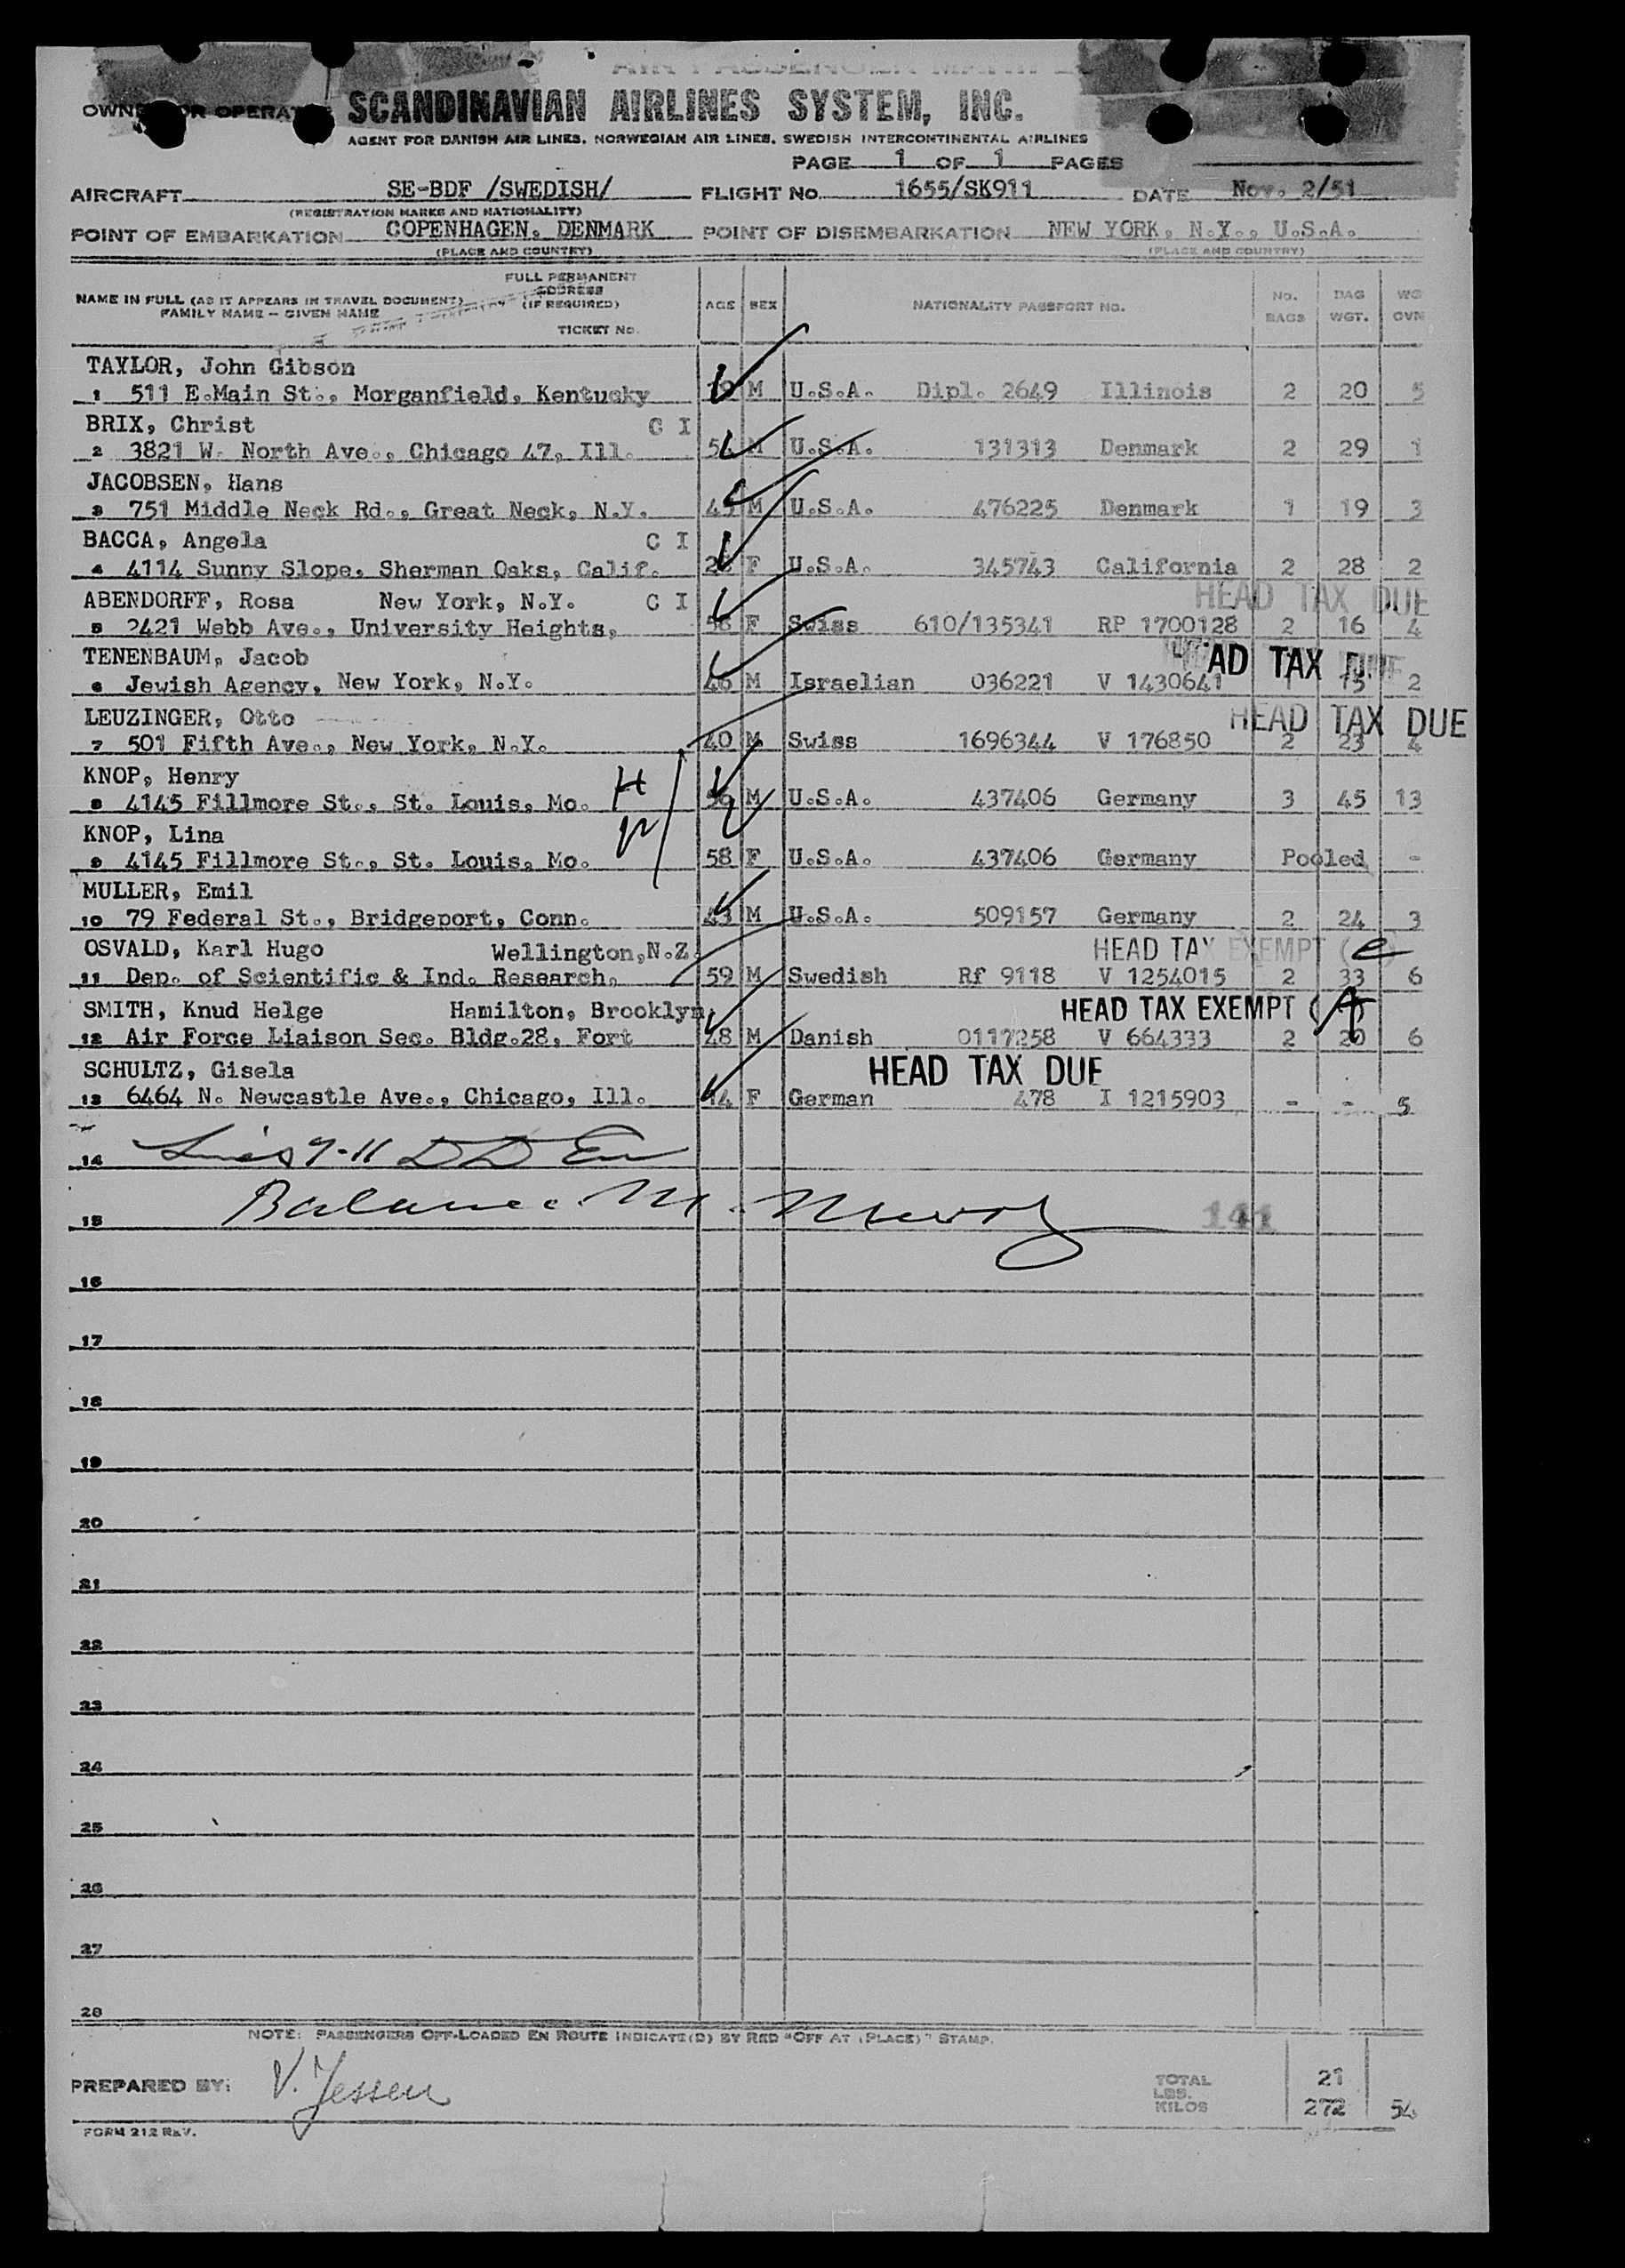 AIR PASSENGER MANIFEST
OWNER OR OPERATOR SCANDINAVIAN AIRLINES SYSTEM, INC.
AGENT FOR DANISH AIR LINES, NORWEGIAN AIR LINES, SWEDISH INTERCONTINENTAL AIRLINES
PAGE 1 OF 1 PAGES
AIRCRAFT SE-BDF /SWEDISH/ FLIGHT No. 1655/SK911 DATE Nov. 2/51
(REGISTRATION MARKS AND NATIONALITY)
POINT OF EMBARKATION COPENHAGEN, DENMARK POINT OF DISEMBARKATION NEW YORK, N.Y., U.S.A.
(PLACE AND COUNTRY) (PLACE AND COUNTRY)
FULL PERMANENT
NAME IN FULL (AS IT APPEARS IN TRAVEL DOCUMENT) ADDRESS (IF REQUIRED) AGE SEX NATIONALITY PASSPORT NO. No. BAGS BAG WGT. WG OVN
FAMILY NAME — GIVEN NAME
TICKET No.
TAYLOR, John Gibson
1 511 E.Main St., Morganfield, Kentucky M U.S.A. Dipl. 2649 Illinois 2 20 5
BRIX, Christ C I
2 3821 W. North Ave., Chicago 47, Ill. 54 M U.S.A. 131313 Denmark 2 29 1
JACOBSEN, Hans
3 751 Middle Neck Rd., Great Neck, N.Y. 45 M U.S.A. 476225 Denmark 1 19 3
BACCA, Angela C I
4 4114 Sunny Slope, Sherman Oaks, Calif. F U.S.A. 345743 California 2 28 2
ABENDORFF, Rosa New York, N.Y. C I HEAD TAX DUE
5 2421 Webb Ave., University Heights, 58 F Swiss 610/135341 RP 1700128 2 16 4
TENENBAUM, Jacob HEAD TAX DUE
6 Jewish Agency, New York, N.Y. 46 M Israelian 036221 V 1430641 1 15 2
LEUZINGER, Otto HEAD TAX DUE
7 501 Fifth Ave., New York, N.Y. 40 M Swiss 1696344 V 176850 2 23 4
KNOP, Henry H
8 4145 Fillmore St., St. Louis, Mo. M U.S.A. 437406 Germany 3 45 13
KNOP, Lina W
9 4145 Fillmore St., St. Louis, Mo. 58 F U.S.A. 437406 Germany Pooled -
MULLER, Emil
10 79 Federal St., Bridgeport, Conn. 43 M U.S.A. 509157 Germany 2 24 3
OSVALD, Karl Hugo Wellington,N.Z. HEAD TAX EXEMPT (e)
11 Dep. of Scientific & Ind. Research, 59 M Swedish Rf 9118 V 1254015 2 33 6
SMITH, Knud Helge Hamilton, Brooklyn, HEAD TAX EXEMPT (A)
12 Air Force Liaison Sec. Bldg.28, Fort 48 M Danish 0117258 V 664333 2 20 6
SCHULTZ, Gisela HEAD TAX DUE
13 6464 N. Newcastle Ave., Chicago, Ill. 14 F German 478 I 1215903 - - 5
14 Lines 7-11
15 Balance M. 141
16
17
18
19
20
21
22
23
24
25
26
27
28
NOTE: PASSENGERS OFF-LOADED EN ROUTE INDICATE(D) BY RED "OFF AT (PLACE)" STAMP.
PREPARED BY: V. Jessen
TOTAL 21
LBS.
KILOS 272 54
FORM 212 REV.